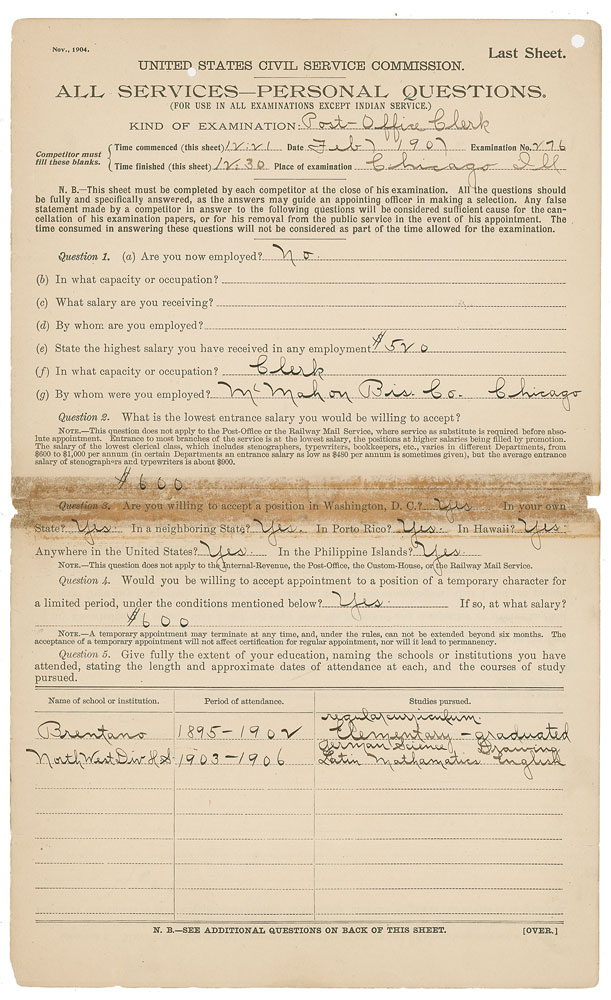 Nov., 1904.
Last Sheet.
UNITED STATES CIVIL SERVICE COMMISSION.
ALL SERVICES—PERSONAL QUESTIONS.
(FOR USE IN ALL EXAMINATIONS EXCEPT INDIAN SERVICE.)
KIND OF EXAMINATION: Post-Office Clerk
Competitor must fill these blanks.
Time commenced (this sheet) 12:21 Date Feb 7 1907 Examination No. 276
Time finished (this sheet) 12:30 Place of examination Chicago Ill
N. B.—This sheet must be completed by each competitor at the close of his examination. All the questions should
be fully and specifically answered, as the answers may guide an appointing officer in making a selection. Any false
statement made by a competitor in answer to the following questions will be considered sufficient cause for the can-
cellation of his examination papers, or for his removal from the public service in the event of his appointment. The
time consumed in answering these questions will not be considered as part of the time allowed for the examination.
Question 1. (a) Are you now employed? No.
(b) In what capacity or occupation?
(c) What salary are you receiving?
(d) By whom are you employed?
(e) State the highest salary you have received in any employment $520
(f) In what capacity or occupation? Clerk
(g) By whom were you employed? McMahon Bis. Co. Chicago
Question 2. What is the lowest entrance salary you would be willing to accept?
NOTE.—This question does not apply to the Post-Office or the Railway Mail Service, where service as substitute is required before abso-
lute appointment. Entrance to most branches of the service is at the lowest salary, the positions at higher salaries being filled by promotion.
The salary of the lowest clerical class, which includes stenographers, typewriters, bookkeepers, etc., varies in different Departments, from
$600 to $1,000 per annum (in certain Departments an entrance salary as low as $480 per annum is sometimes given), but the average entrance
salary of stenographers and typewriters is about $900.
$600
Question 3. Are you willing to accept a position in Washington, D. C.? Yes In your own
State? Yes. In a neighboring State? Yes. In Porto Rico? Yes. In Hawaii? Yes.
Anywhere in the United States? Yes. In the Philippine Islands? Yes.
NOTE.—This question does not apply to the Internal-Revenue, the Post-Office, the Custom-House, or the Railway Mail Service.
Question 4. Would you be willing to accept appointment to a position of a temporary character for
a limited period, under the conditions mentioned below? Yes. If so, at what salary?
$600
NOTE.—A temporary appointment may terminate at any time, and, under the rules, can not be extended beyond six months. The
acceptance of a temporary appointment will not affect certification for regular appointment, nor will it lead to permanency.
Question 5. Give fully the extent of your education, naming the schools or institutions you have
attended, stating the length and approximate dates of attendance at each, and the courses of study
pursued.
Name of school or institution. Period of attendance. Studies pursued.
regular curriculum.
Brentano 1895-1902 Elementary - graduated
German Science, Drawing
North West Div H S 1903-1906 Latin Mathamatics English
N. B.—SEE ADDITIONAL QUESTIONS ON BACK OF THIS SHEET. [OVER.]